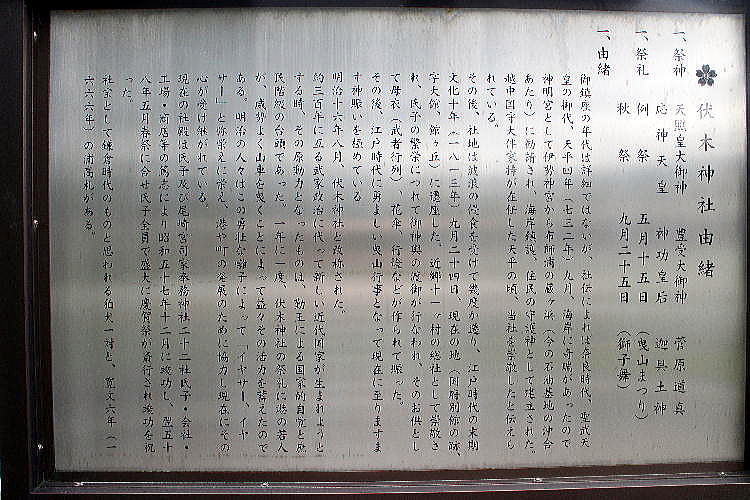 伏木神社由緒
一、祭神　天照皇大御神　豊受大御神　菅原道真
応神天皇　神功皇后　迦具土神
一、祭礼　例祭　五月十五日　（曳山まつり）
秋祭　九月二十五日　（獅子舞）
一、由緒
御鎮座の年代は詳細ではないが、社伝によれば奈良時代、聖武天
皇の御代、天平四年（七三二年）九月、海岸に奇瑞があったので
神明宮として伊勢神宮から布師浦の蔵ヶ浜（今の石油基地の沖合
あたり）に勧請され、海岸鎮護、住民の守護神として建立された。
越中国守大伴家持が在任した天平の頃、当社を崇敬したと伝えら
れている。
その後、社地は波浪の侵食を受けて幾度か遷り、江戸時代の末期
文化十年（一八一三年）九月二十四日、現在の地（国府別館の跡、
字大館、錦ヶ丘）に遷座した。近郷十一ヶ村の総社として崇敬さ
れ、氏子の繁栄につれて御神輿の渡御が行なわれ、そのお供とし
て母衣（武者行列）、花傘、行燈などが作られて賑った。
その後、江戸時代に勇ましい曳山行事となって現在に至りますま
す神賑いを極めている
明治十六年八月、伏木神社と改称された。
約三百年に亙る武家政治に代って新しい近代国家が生まれようと
する時、その原動力となったものは、勤王による国家的自覚と庶
民階級の台頭であった。一年に一度、伏木神社の祭礼に港の若人
が、威勢よく山車を曳くことによって益々その活力を蓄えたので
ある。明治の人々はこの勇壮な囃子によって「イヤサー、イヤ
サー」と弥栄えに栄え、港や町の発展のために協力し現在にその
心が受け継がれている。
現在の社殿は氏子及び尾崎宮司家奉務神社二十三社氏子・会社・
工場・商店等の篤志により昭和五十七年十二月に竣功し、翌五十
八年五月春祭に合せ氏子全員で盛大に慶賀祭が斎行され竣功を祝
った。
社宝として鎌倉時代のものと思われる狛犬一対と、寛文六年（一
六六六年）の浦高札がある。